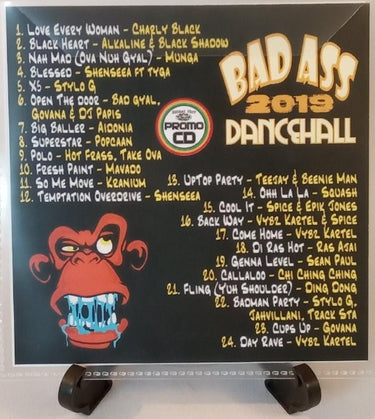 1. Love Every Woman - Charly Black
2. Black Heart - Alkaline & Black Shadow
3. Nah Mad (Ova Nuh Gyal) - Munga
4. Blessed - Shenseea ft Tyga
5. X5 - Stylo G
6. Open The Door - Bad Gyal,
Govana & DJ Papis
7. Big Baller - Aidonia
8. Superstar - Popcaan
9. Polo - Hot Frass, Take Ova
10. Fresh Paint - Mavado
11. So Me Move - Kranium
12. Temptation Overdrive - Shenseea
BAD ASS
2019
DANCEHALL
PROMO
CD
13. UpTop Party - Teejay & Beenie Man
14. Ohh La La - Squash
15. Cool It - Spice & Epik Jones
16. Back Way - Vybz Kartel & Spice
17. Come Home - Vybz Kartel
18. Di Ras Hot - Ras Ajai
19. Genna Level - Sean Paul
20. Callaloo - Chi Ching Ching
21. Fling (Yuh Shoulder) - Ding Dong
22. Badman Party - Stylo G,
Jahvillani, Track Sta
23. Cups Up - Govana
24. Day Rave - Vybz Kartel